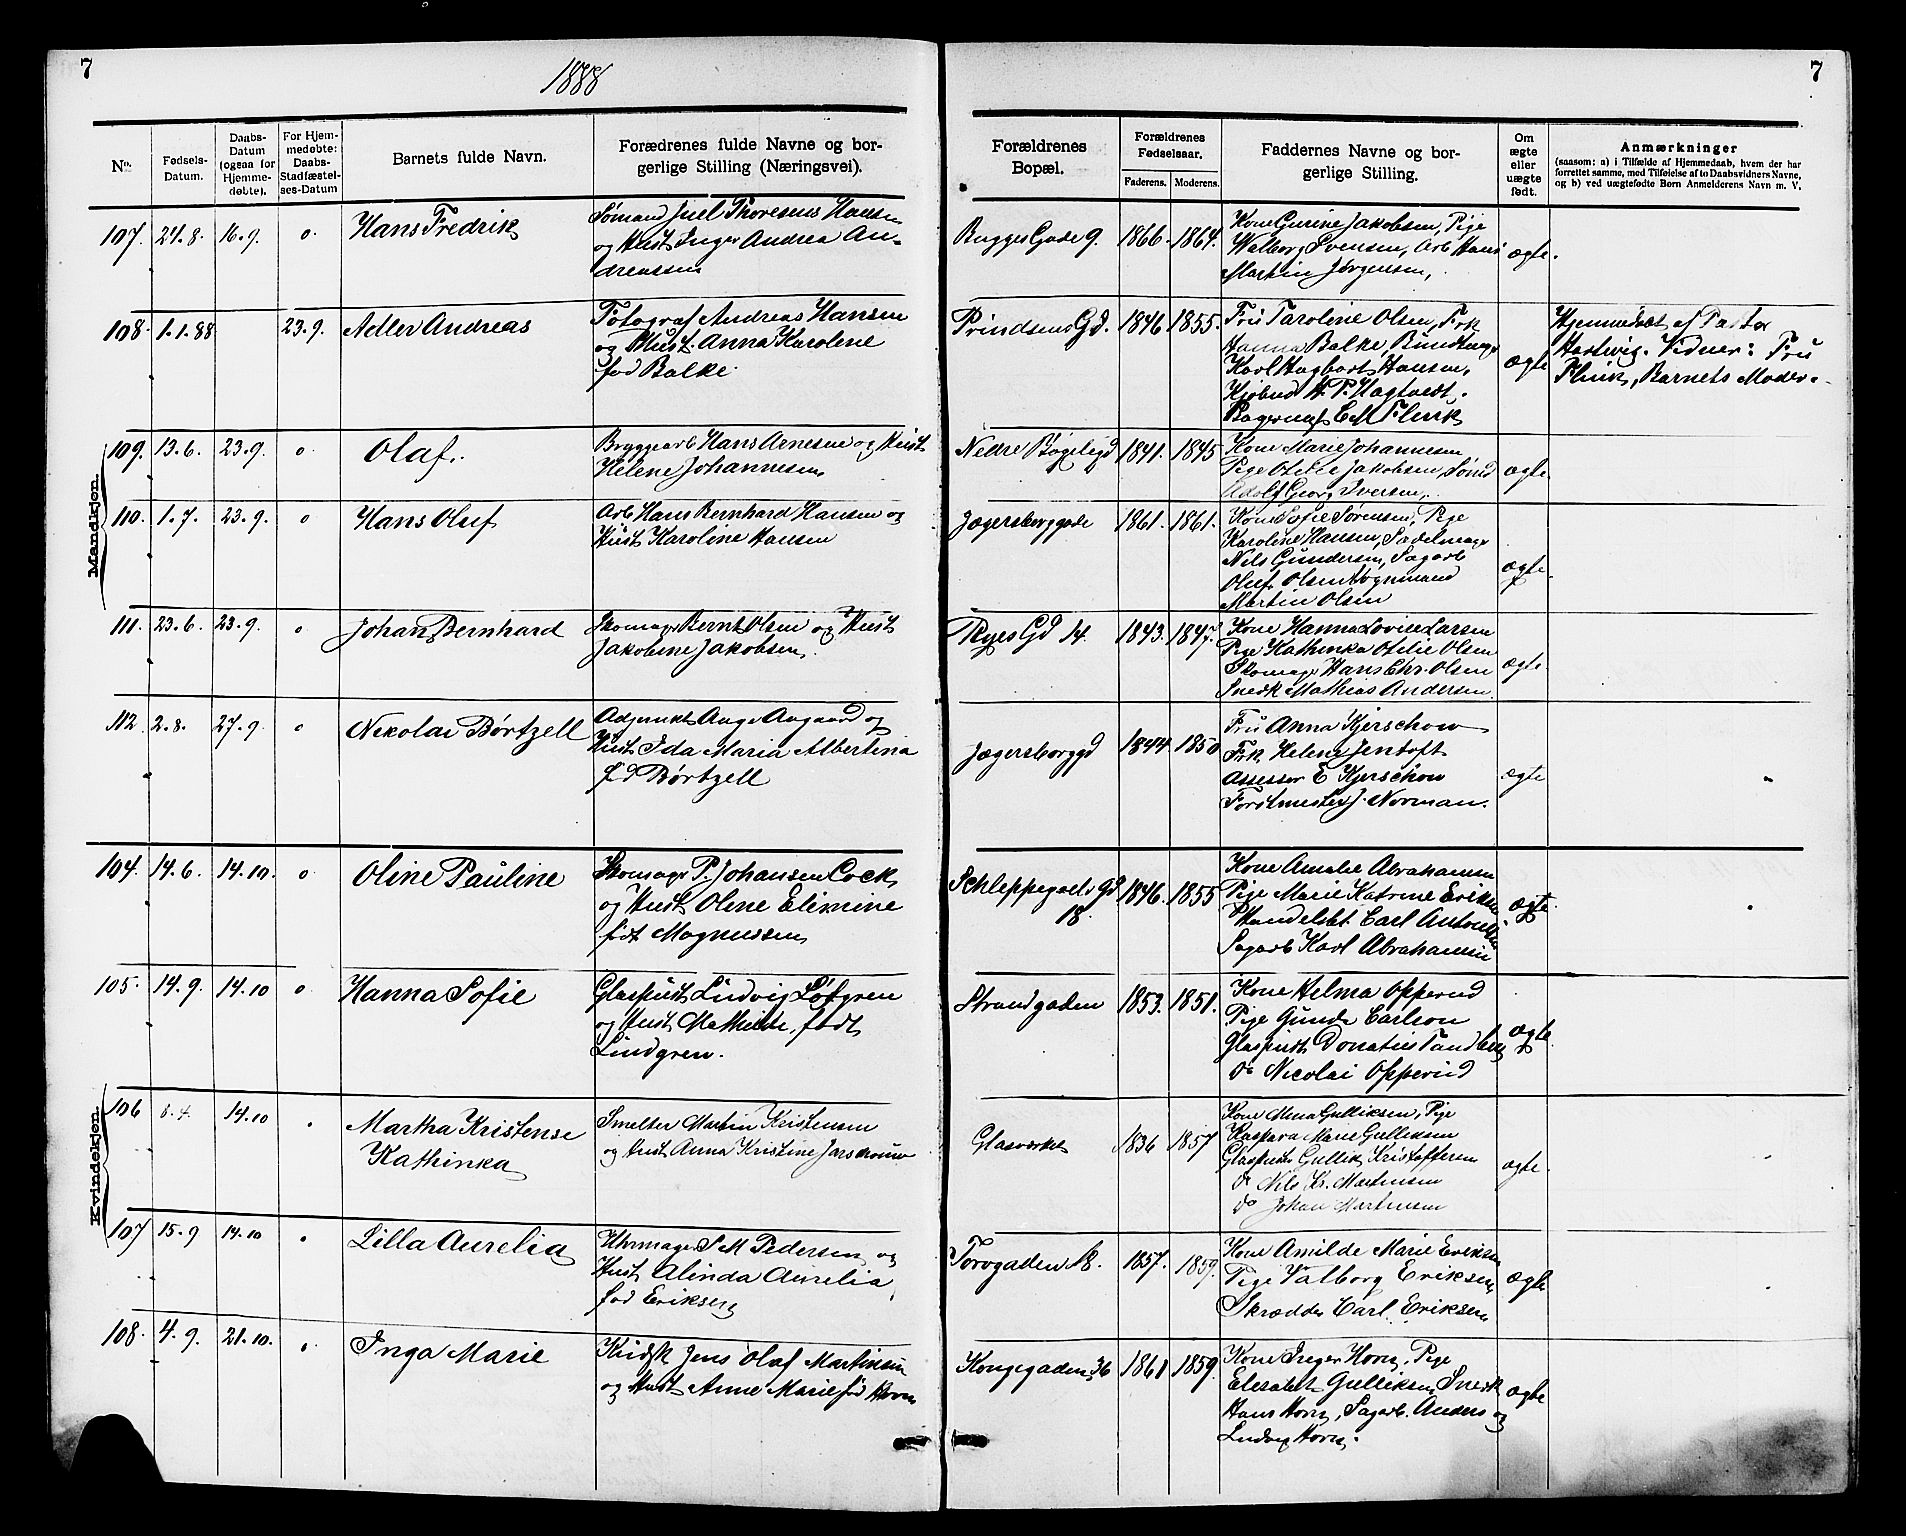 7
1888
7
No.
Fødsels-
Datum.
Daabs-
Datum
(ogsaa for
Hjemme-
døbte).
For Hjem-
medøbte:
Daabs-
Stadfæstel-
ses-Datum
Barnets fulde Navn.
Forædrenes fulde Navne og bor-
gerlige Stilling (Næringsvei).
Forældrenes
Bopæl.
Forældrenes
Fødselsaar.
Faderens.
Moderens.
Faddernes Navne og bor-
gerlige Stilling.
Om
ægte
eller
uægte
født.
Anmærkninger
(saasom: a) i Tilfælde af Hjemmedaab, hvem der har
forrettet samme, med Tilføielse af to Daabsvidners Navne,
og b) ved uægtefødte Børn Anmelderens Navn m. V.
Mandkjøn.
107. 21.8. 16.9. o. Hans Fredrik
Sømand Juel Thoresens Hansen
og Hust Inger Andrea An-
dreassen
Bugges Gade 9. 1866. 1864.
Kone Gurine Jakobsen, Pige
Walborg Svensen, Arb Hans
Martin Jørgensen,
ægte.
108. 1.1.88 23.9. Adler Andreas
Fotograf Andreas Hansen
og Hust. Anna Karolene
fød Balke.
Prindsens Gd. 1846 1855.
Fru Caroline Olsen, Frk
Hanna Balke,
Karl Hagbart Hansen,
H. P. Hagtvedt.
C M Flink
ægte
Hjemmedøbt af Pastor
Hartvig. Vidner: Fru
Flink, Barnets Moder.
109. 13.6. 23.9. o Olaf.
Bryggearb Hans Arnesen og Hust
Helene Johannesen
Nedre Bøgeligd 1841. 1845
Kone Marie Johannesen
Pige Otilie Jakobsen, Sømd
Adolf Georg Iversen,
ægte
110. 1.7. 23.9. o Hans Oluf
Arb Hans Bernhard Hansen og
Hust Karoline Hansen
Jægersborggade 1861. 1861.
Kone Sofie Sørensen, Pige
Karoline Hansen, Sadelmager
Nils Gundersen, Sagarb
Oluf Olsen Vognmand
Martin Olsen
ægte.
111. 23.6. 23.9. o Johan Bernhard
Skomager Bernt Olsen og Hust
Jakobine Jakobsen.
Ryes Gd 14. 1843. 1847.
Kone Hanna Lovise Larsen
Pige Kathinka Otilie Olsen
Skomager Hans Chr. Olsen
Snedk Mathias Andersen
ægte
112 2.8. 27.9 o Nikolai Børtzell
Adjunkt Aage Aagaard og
Hust Ida Maria Albertina
fd Børtzell
Jægersborggd 1844 1850
Fru Anna Kjerschow
Frk Helene Jentoft
Assessor E Kjerschow
Forstmester J. Norman.
ægte
Kvindekjøn.
104. 14.6. 14.10. o. Oline Pauline
Skomager P. Johansen Cock
og Hust Olene Elimine
født Magnussen
Schleppegrels Gd 18. 1846. 1855
Kone Amalie Abrahamsen
Pige Marie Katrine Eriksen
Handelsbt. Carl Antonsen
Sagarb Karl Abrahamsen
ægte.
105. 14.9. 14.10 o Hanna Sofie
Glaspust Ludvig Löfgren
og Hust Mathilde, født
Lindgren.
Strandgaden 1853. 1851.
Kone Helma Opperud
Pige Gunda Carlson
Glaspust Donatius Tandberg
do Nicolai Opperud
ægte
106 14.10 Martha Kristense
Kathinka
Smelter Martin Kristensen
og Hust Anna Kristine
Glasværket 1836 1857
Kone Alma Gulliksen, Pige
Kaspara Marie Gulliksen
Glaspuster Gullik Kristoffersen
do Nils Kr. Martinsen
do Johan Martinsen
ægte
107 15.9 14.10 Lilla Aurelia
Uhrmager S M Pedersen og
Hust Alinda Aurelia
fød Eriksen
Torvgaden 18. 1857. 1859.
Kone Amilde Marie Eriksen
Pige Valborg Eriksen
Skrædder Carl Eriksen
ægte
108. 4.9. 21.10. Inga Marie
Kudsk Jens Olaf Martinsen
og Hust Anne Marie fød Horn
Kongegaden 36 1861 1859.
Kone Inger Horn, Pige
Elesabet Gulliksen, Snedk
Hans Horn, Sagarb. Anders og
Ludvig Horn.
ægte